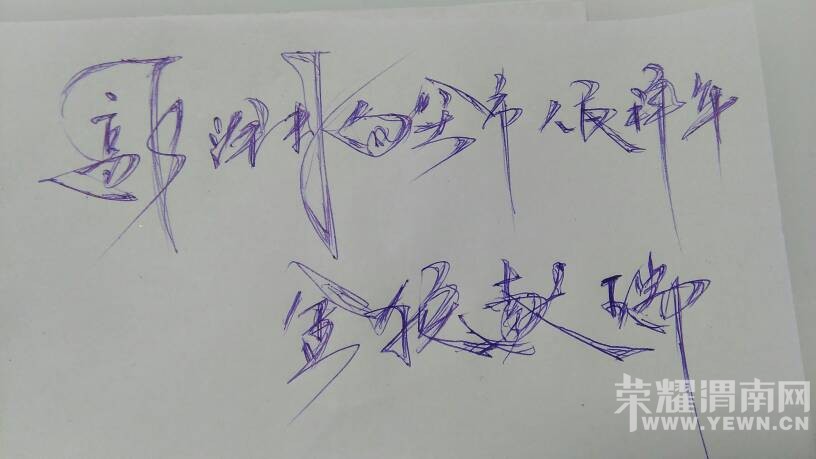 郭泽林向全市人民拜年
金猴献瑞
荣耀渭南网
WWW.YEWN.CN